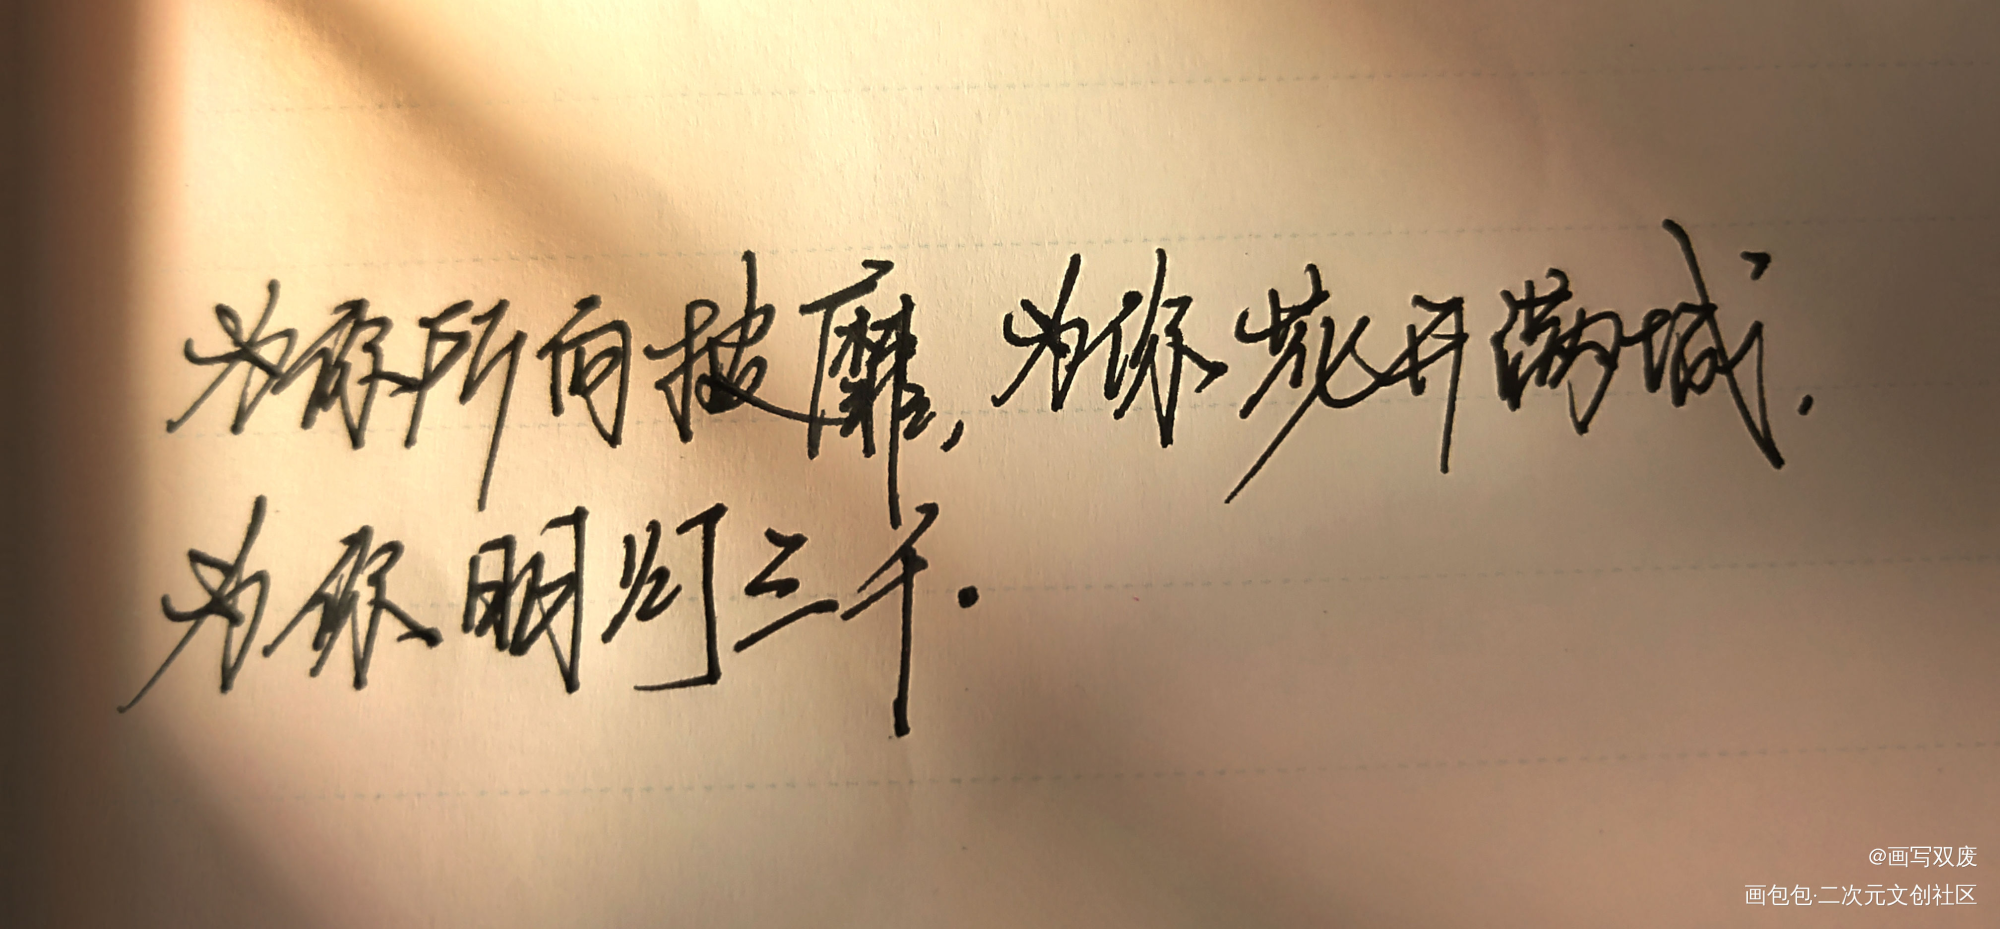 为你所向披靡,为你花开满城.
为你明灯三千.
@画写双废
画包包·二次元文创社区